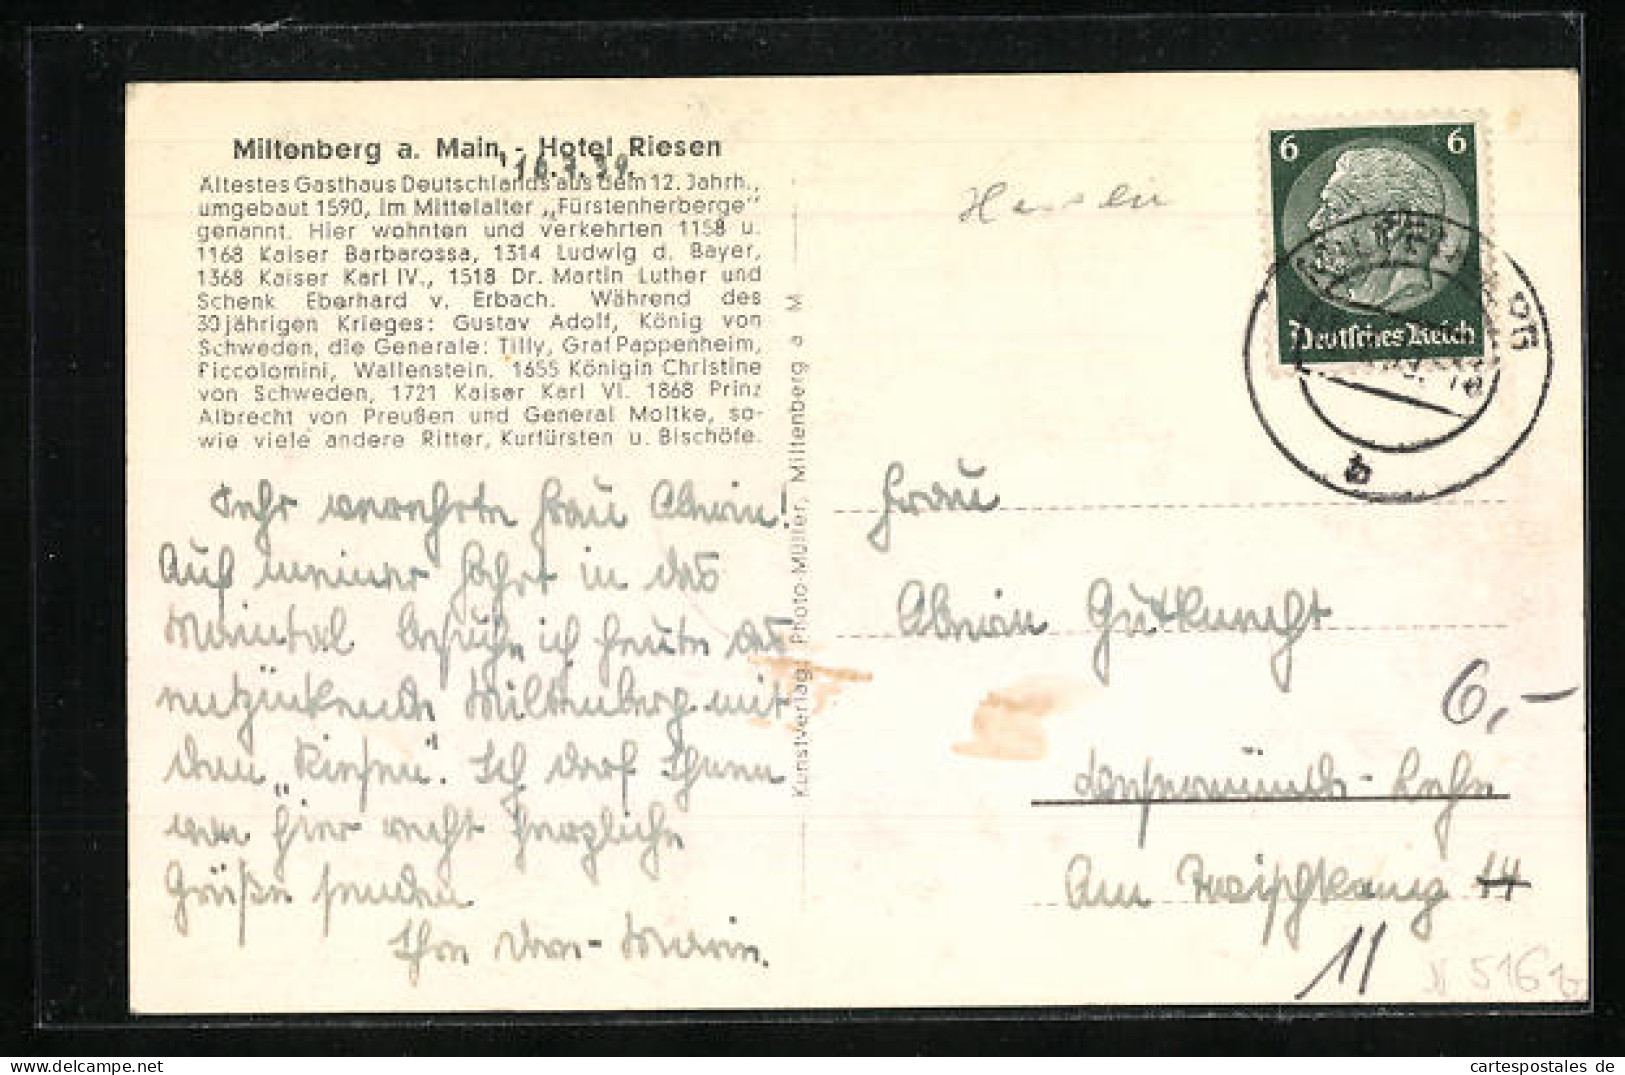 Miltenberg a. Main, - Hotel Riesen
Ältestes Gasthaus Deutschlands aus dem 12. Jahrh.,
umgebaut 1590, im Mittelalter „Fürstenherberge"
genannt. Hier wohnten und verkehrten 1158 u.
1168 Kaiser Barbarossa, 1314 Ludwig d. Bayer,
1368 Kaiser Karl IV., 1518 Dr. Martin Luther und
Schenk Eberhard v. Erbach. Während des
30jährigen Krieges: Gustav Adolf, König von
Schweden, die Generale: Tilly, Graf Pappenheim,
Piccolomini, Wallenstein. 1655 Königin Christine
von Schweden, 1721 Kaiser Karl VI. 1868 Prinz
Albrecht von Preußen und General Moltke, so-
wie viele andere Ritter, Kurfürsten u. Bischöfe.
Sehr verehrte Frau
Auf meiner Fahrt in das
Maintal besuche ich heute das
entzückende Miltenberg mit
dem „Riesen". Ich darf Ihnen
von hier recht herzliche
Grüße senden
Ihre
Kunstverlag: Photo-Müller, Miltenberg a M
6 6
Deutsches Reich
b
Frau
Gutknecht
Wesermünde-Lehe
Am 14
11
6,-
5161
cartespostales de